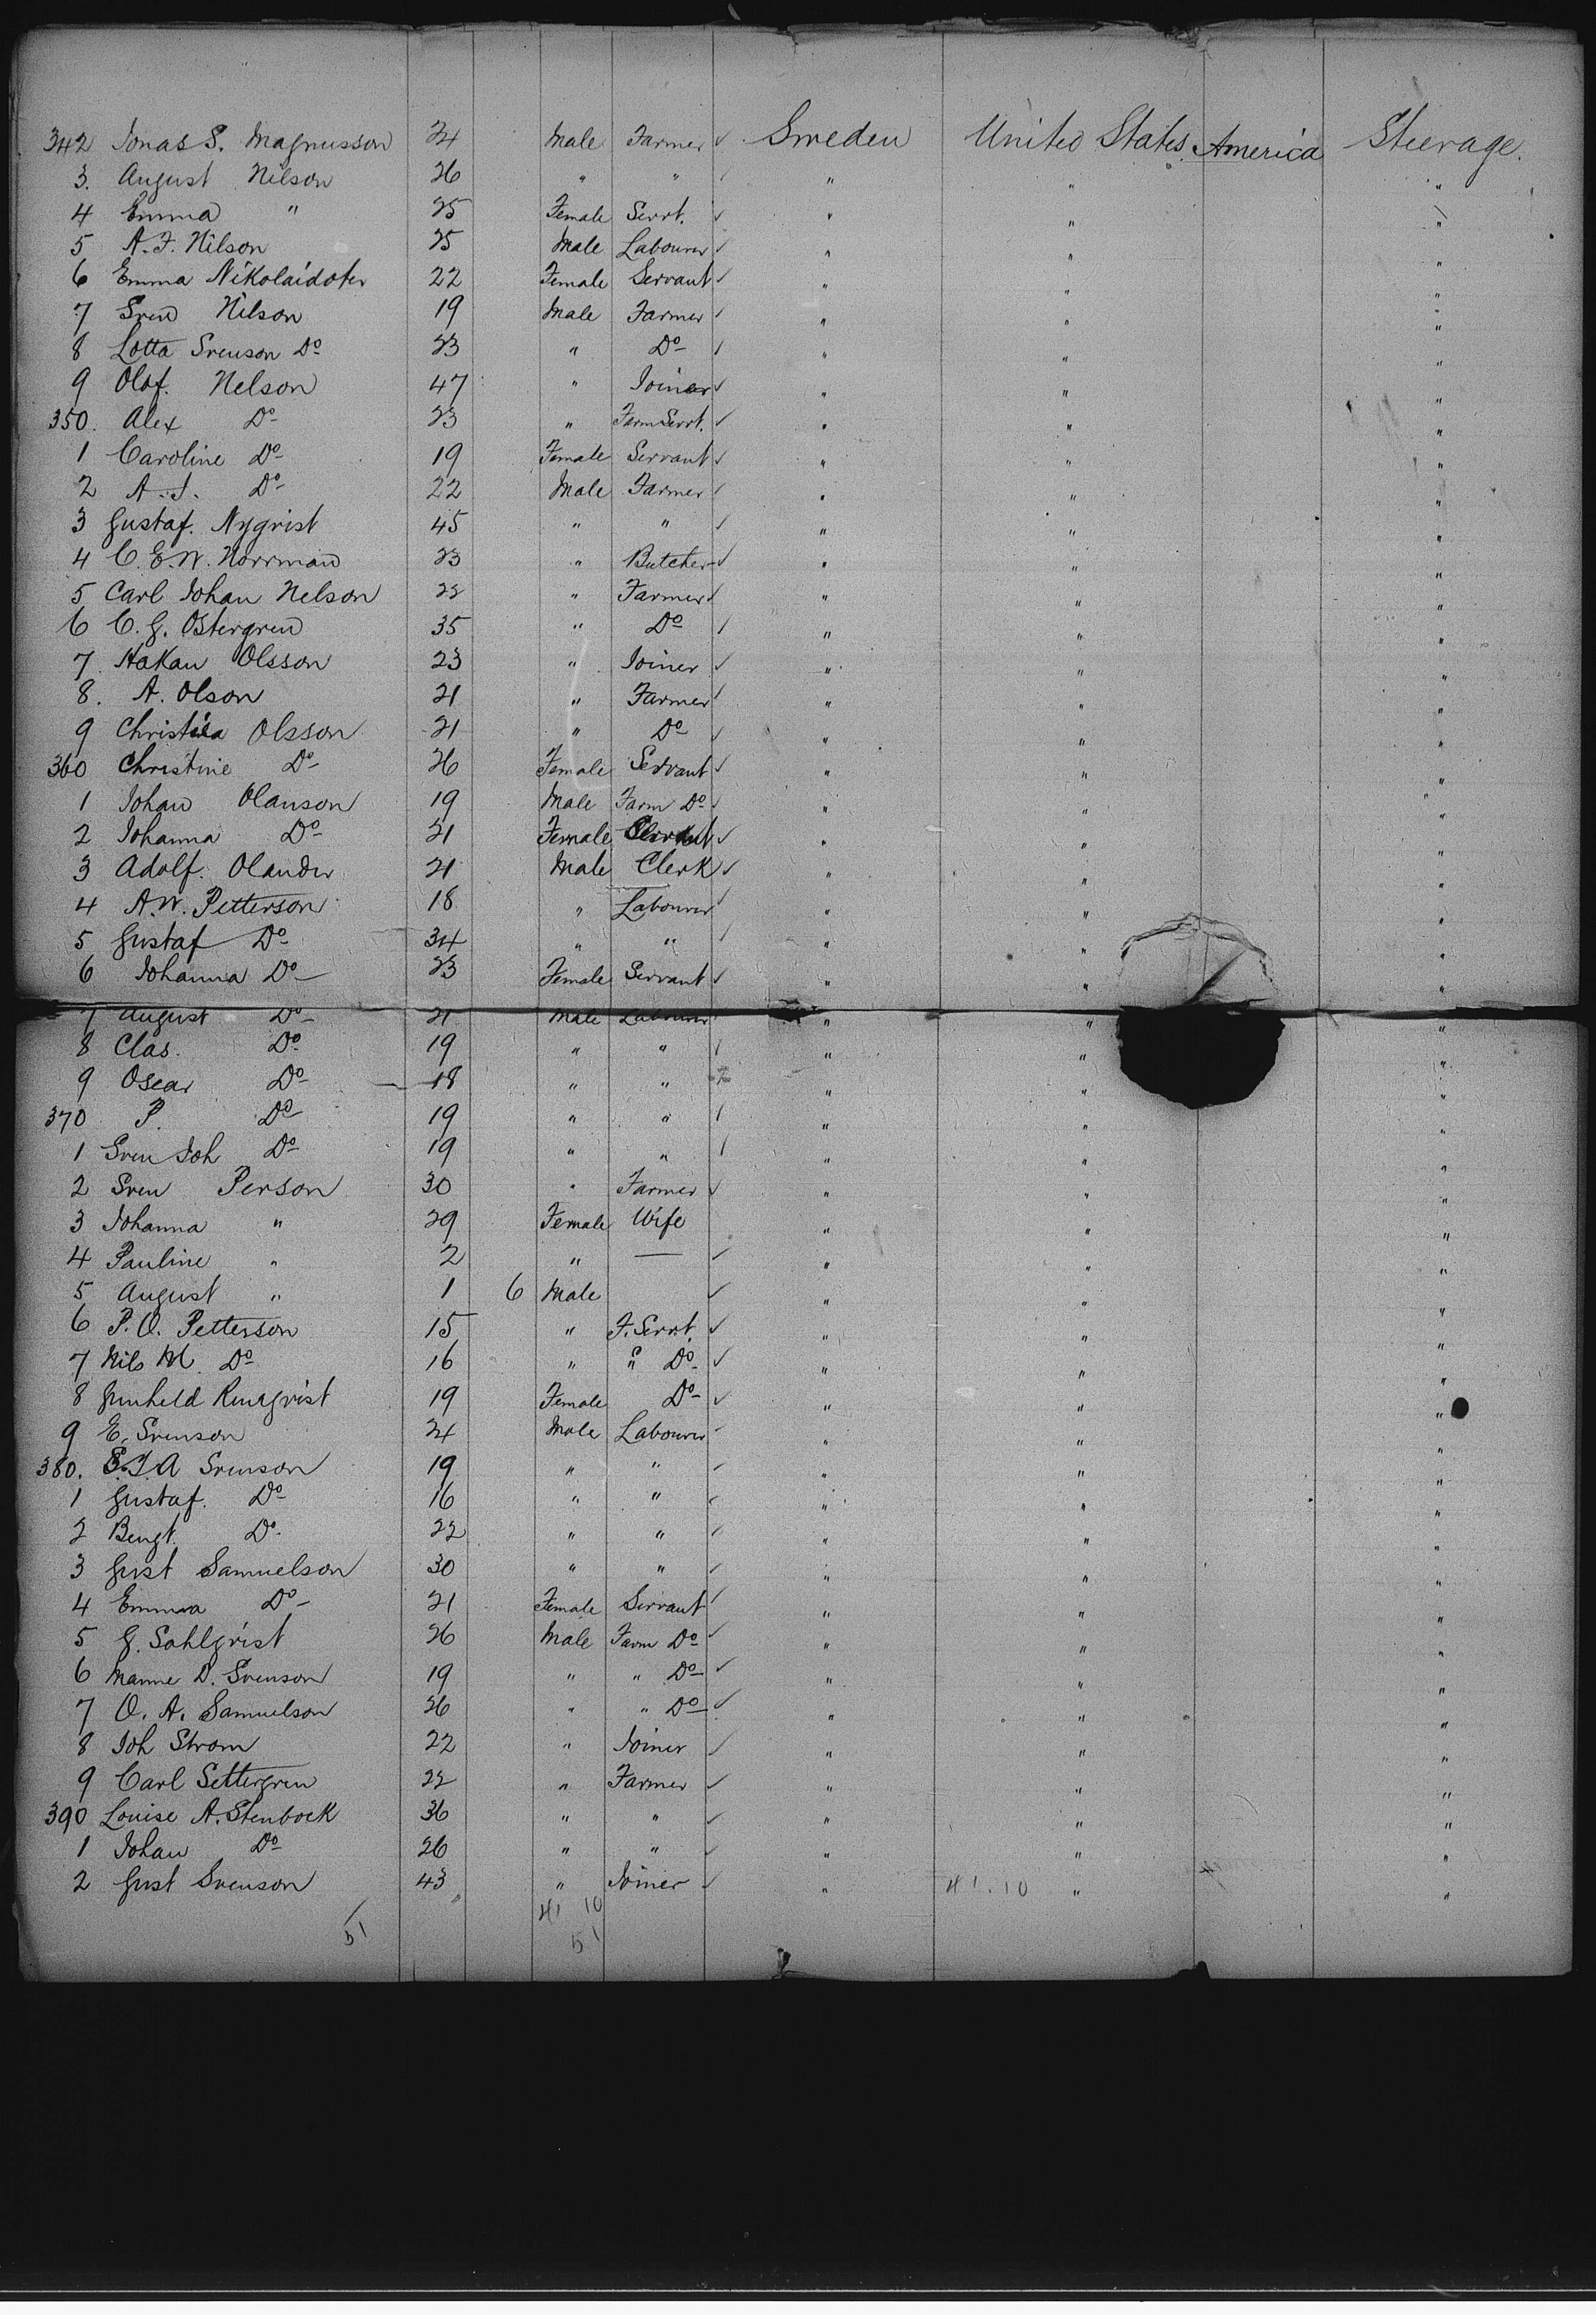 342 Jonas S. Magnusson 24 Male Farmer Sweden United States America Steerage.
3. August Nilson 26 " " " " "
4 Emma " 25 Female Servt. " " "
5 A. F. Nilson 25 Male Labourer " " "
6 Emma Nikolaidoter 22 Female Servant " " "
7 Sven Nilson 19 Male Farmer " " "
8 Lotta Svenson Do 23 " Do " " "
9 Olof. Nelson 47 " Joiner " " "
350. Alex Do 23 " Farm Servt. " " "
1 Caroline Do 19 Female Servant " " "
2 A. J. Do 22 Male Farmer " " "
3 Gustaf. Nyqvist 45 " " " " "
4 C. E. W. Norrman 23 " Butcher " " "
5 Carl Johan Nelson 22 " Farmer " " "
6 C. G. Ostergren 35 " Do " " "
7. Hakan Olsson 23 " Joiner " " "
8. A. Olson 21 " Farmer " " "
9 Olsson 21 " Do " " "
360 Christine Do 26 Female Servant " " "
1 Johan Olanson 19 Male Farm Do " " "
2 Johanna Do 21 Female " " "
3 Adolf. Olander 21 Male Clerk " " "
4 A. W. Petterson 18 " Labourer " " "
5 Gustaf Do 34 " " " " "
6 Johanna Do 23 Female Servant " " "
7 August Do 21 Male Labourer " " "
8 Clas. Do 19 " " " " "
9 Oscar Do 18 " " " " "
370 P. Do 19 " " " " "
1 Sven Joh Do 19 " " " " "
2 Sven Person 30 " Farmer " " "
3 Johanna " 29 Female Wife " " "
4 Pauline " 2 " — " " "
5 August " 1 6 Male " " "
6 P. O. Petterson 15 " F. Servt. " " "
7 Nils M. Do 16 " " Do " " "
8 Gunheld 19 Female Do " " "
9 E. Svenson 24 Male Labourer " " "
380. S. J. A Svenson 19 " " " " "
1 Gustaf. Do 16 " " " " "
2 Bengt. Do 22 " " " " "
3 Gust Samuelson 30 " " " " "
4 Emma Do 21 Female Servant " " "
5 G. Sahlqvist 26 Male Farm Do " " "
6 D. Svenson 19 " " Do " " "
7 O. A. Samuelson 26 " " Do " " "
8 Joh Strom 22 " Joiner " " "
9 Carl Settergren 22 " Farmer " " "
390 Louise A. Stenbock 36 " " " " "
1 Johan Do 26 " " " " "
2 Gust Svenson 43 " Joiner " 41. 10 " "
41 10
51 51